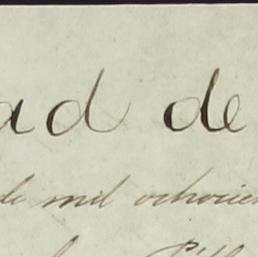 ad de
de mil ochocien